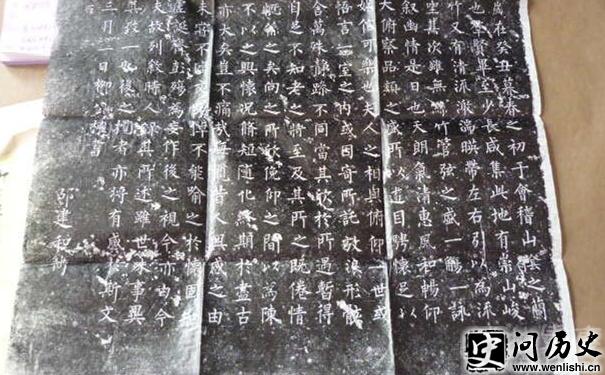 歲在癸丑暮春之初于會稽山陰之蘭
也羣賢畢至少長咸集此地有崇山峻
竹又有清流激湍暎帶左右引以為流
坐其次雖無絲竹管弦之盛一觴一詠
叙幽情是日也天朗氣清惠風和暢仰
大俯察品類之盛所以遊目騁懷足以
娛信可樂也夫人之相與俯仰一世或
悟言一室之內或因寄所託放浪形骸
舍萬殊靜躁不同當其欣於所遇暫得
自足不知老之將至及其所之既倦情
慨係之矣向之所欣俛仰之間以為陳
不以之興懷況脩短隨化終期於盡古
亦大矣豈不痛哉每覽昔人興感之由
未嘗不臨文嗟悼不能喻之於懷固
虛誕齊彭殤為妄作後之視今亦由今
夫故列叙時人錄其所述雖世殊事異
其致一也後之覽者亦將有感於斯文
三月一日柳公權書
邵建和
问历史
www.wenlishi.cn